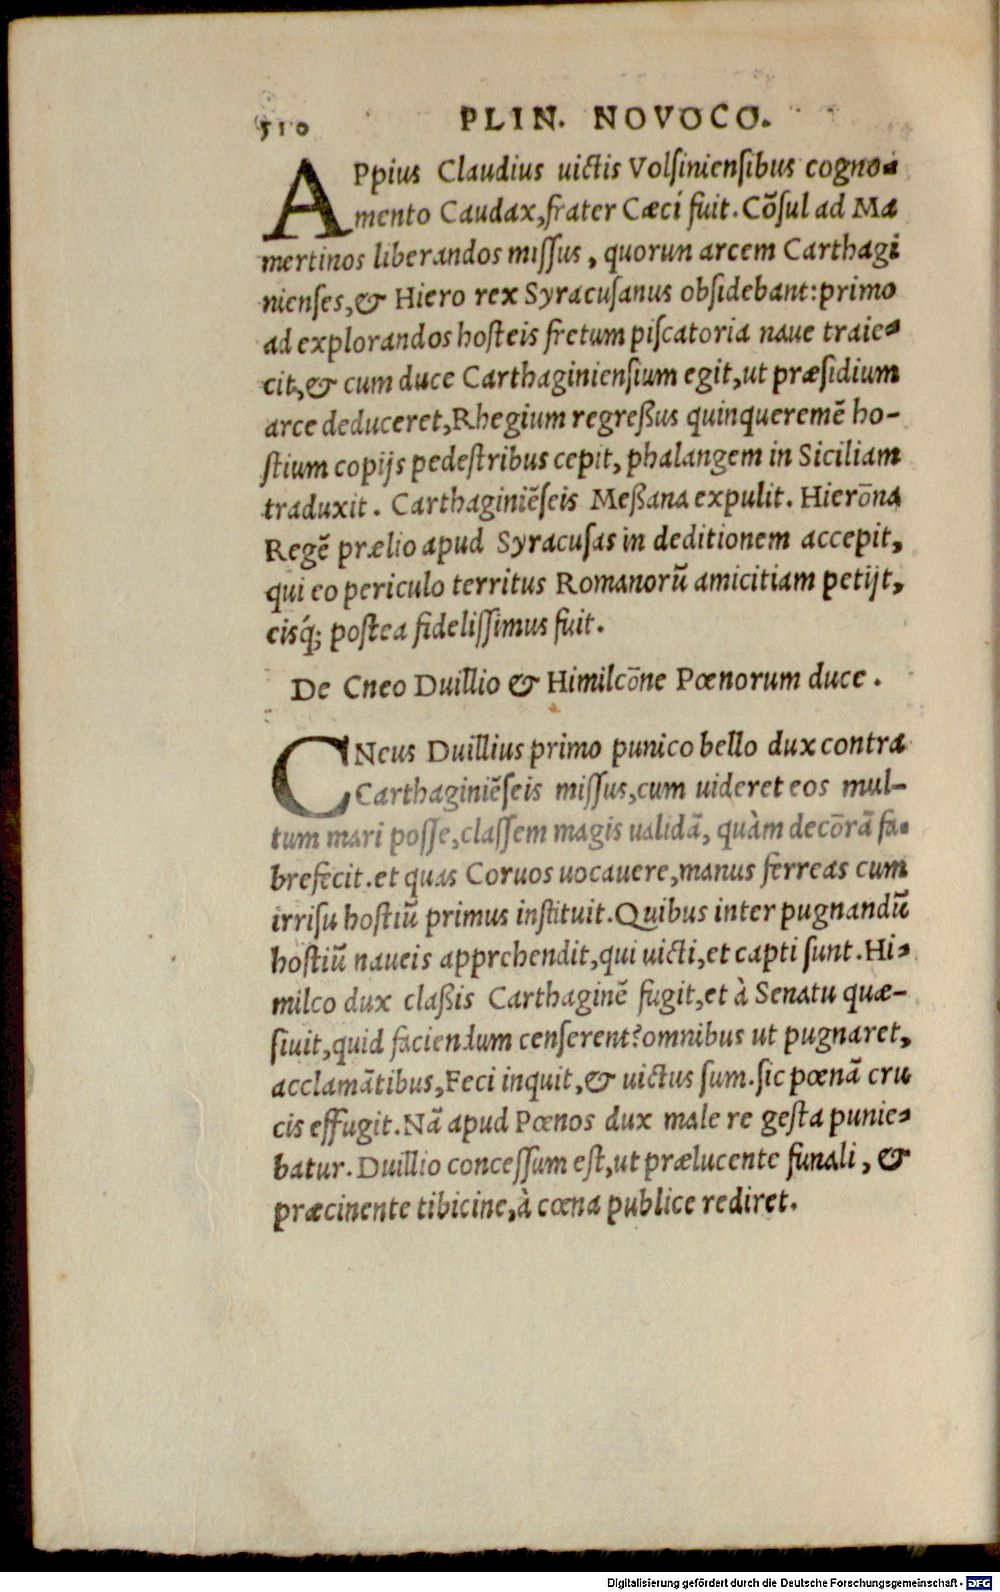 510 PLIN. NOVOCO.
APpius Claudius uictis Volſinienſibus cogno-
mento Caudax, frater Cæci fuit. Cõſul ad Ma
mertinos liberandos miſſus, quorun arcem Carthagi
nienſes, & Hiero rex Syracuſanus obſidebant: primo
ad explorandos hoſteis fretum piſcatoria naue traie-
cit, & cum duce Carthaginienſium egit, ut præſidium
arce deduceret, Rhegium regreßus quinqueremẽ ho-
ſtium copijs pedeſtribus cepit, phalangem in Siciliam
traduxit. Carthaginiẽſeis Meßana expulit. Hierõna
Regẽ prælio apud Syracuſas in deditionem accepit,
qui eo periculo territus Romanorũ amicitiam petijt,
eisq́; poſtea fideliſſimus fuit.
De Cneo Duillio & Himilcõne Pœnorum duce.
CNeus Duillius primo punico bello dux contra
Carthaginiẽſeis miſſus, cum uideret eos mul-
tum mari poſſe, claſſem magis ualidã, quàm decõrã fa-
brefecit. et quas Coruos uocauere, manus ferreas cum
irriſu hoſtiũ primus inſtituit. Quibus inter pugnandũ
hoſtiũ naueis apprehendit, qui uicti, et capti ſunt. Hi-
milco dux claßis Carthaginẽ fugit, et à Senatu quæ-
ſiuit, quid faciendum cenſerent? omnibus ut pugnaret,
acclamãtibus, Feci inquit, & uictus ſum. ſic pœnã cru
cis effugit. Nã apud Pœnos dux male re geſta punie-
batur. Duillio conceſſum eſt, ut prælucente funali, &
præcinente tibicine, à cœna publice rediret.
Digitalisierung gefördert durch die Deutsche Forschungsgemeinschaft - DFG